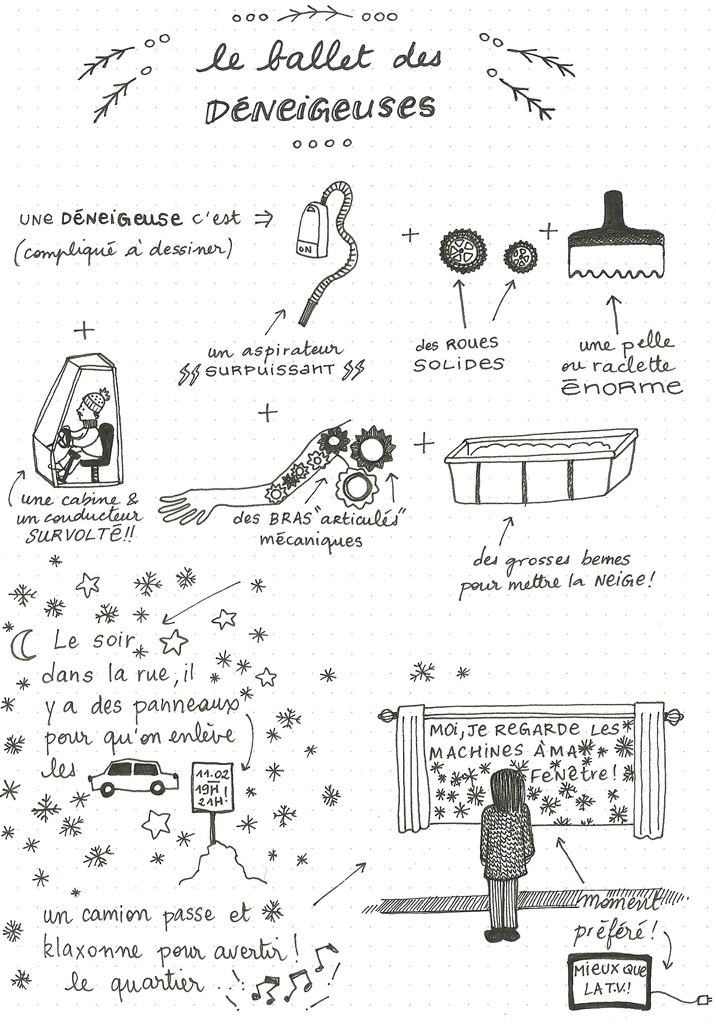 le ballet des
DÉNEIGEUSES
UNE DÉNEIGEUSE C'EST ⇒
(compliqué à dessiner)
ON
+
+
un aspirateur
SURPUISSANT
des ROUES
SOLIDES
une pelle
ou raclette
ÉNORME
+
une cabine &
un conducteur
SURVOLTÉ!!
+
des BRAS "articulés"
mécaniques
+
des grosses bennes
pour mettre la NEIGE!
Le soir
dans la rue, il
y a des panneaux
pour qu'on enlève
les
11.02
19H!
21H!
un camion passe et
klaxonne pour avertir!
le quartier...
MOI, JE REGARDE LES
MACHINES À MA
FENÊTRE!
moment
préféré!
MIEUX QUE
LA T.V.!